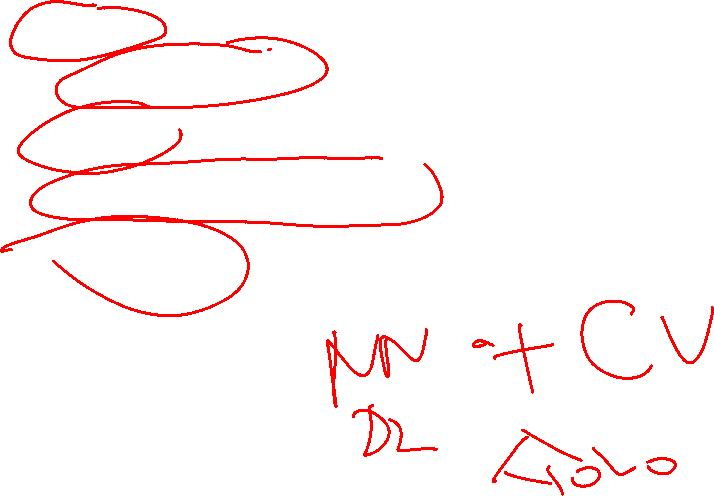 NN + CV
DL YOLO